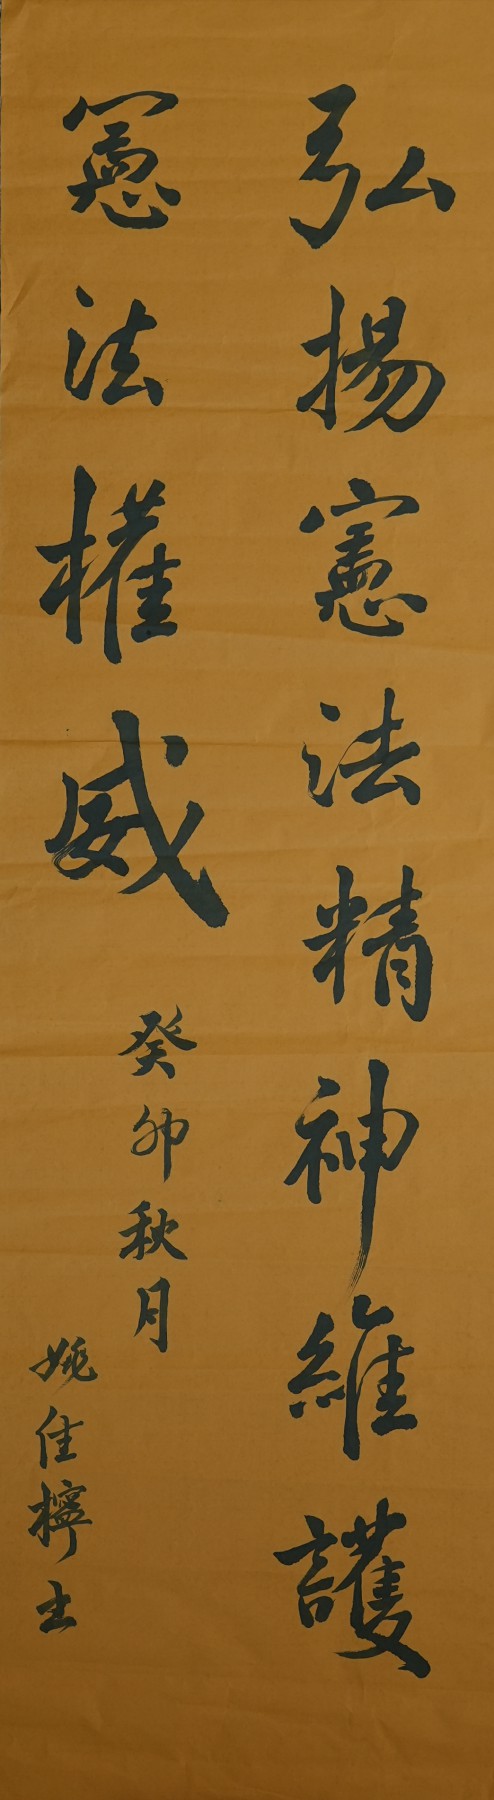 弘揚憲法精神維護
憲法權威
癸卯秋月
姚佳檸书